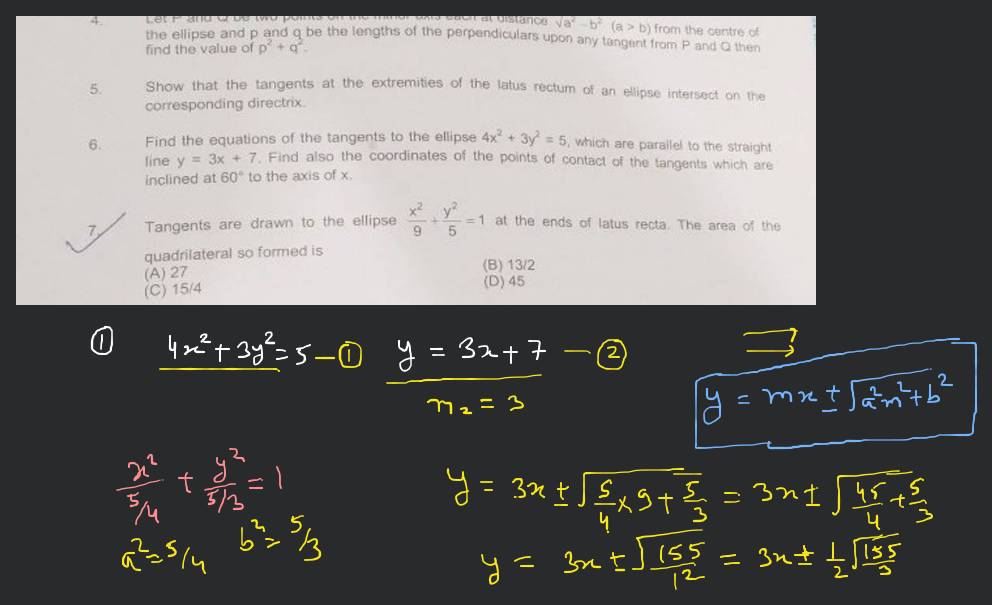 4. Let P and Q be two points on the minor axis each at distance √a² - b² (a > b) from the centre of
the ellipse and p and q be the lengths of the perpendiculars upon any tangent from P and Q then
find the value of p² + q².
5. Show that the tangents at the extremities of the latus rectum of an ellipse intersect on the
corresponding directrix.
6. Find the equations of the tangents to the ellipse 4x² + 3y² = 5, which are parallel to the straight
line y = 3x + 7. Find also the coordinates of the points of contact of the tangents which are
inclined at 60° to the axis of x.
7. Tangents are drawn to the ellipse x²/9 + y²/5 = 1 at the ends of latus recta. The area of the
quadrilateral so formed is
(A) 27 (B) 13/2
(C) 15/4 (D) 45
① 4x² + 3y² = 5 — ① y = 3x + 7 — ②
m₂ = 3
y = mx ± √a²m² + b²
x²/5/4 + y²/5/3 = 1
a² = 5/4 b² = 5/3
y = 3x ± √5/4 × 9 + 5/3 = 3x ± √45/4 + 5/3
y = 3x ± √155/12 = 3x ± 1/2 √155/3